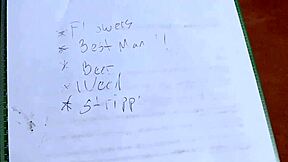 * Flowers
* Best Man !!
* Beer
* Weed
* Stripp